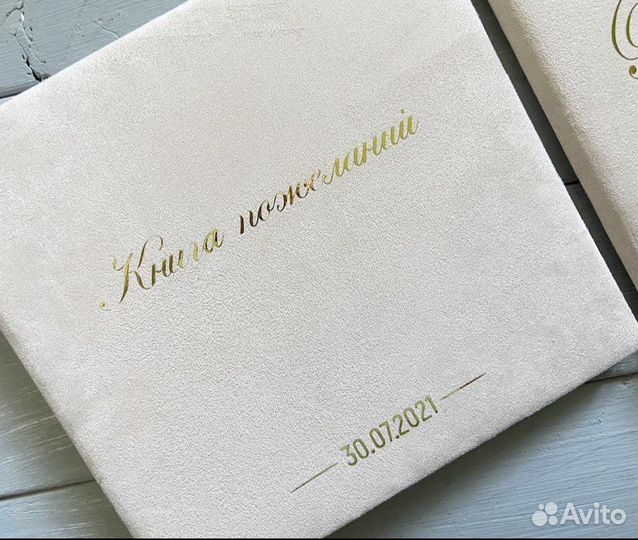 Книга пожеланий
30.07.2021
Avito